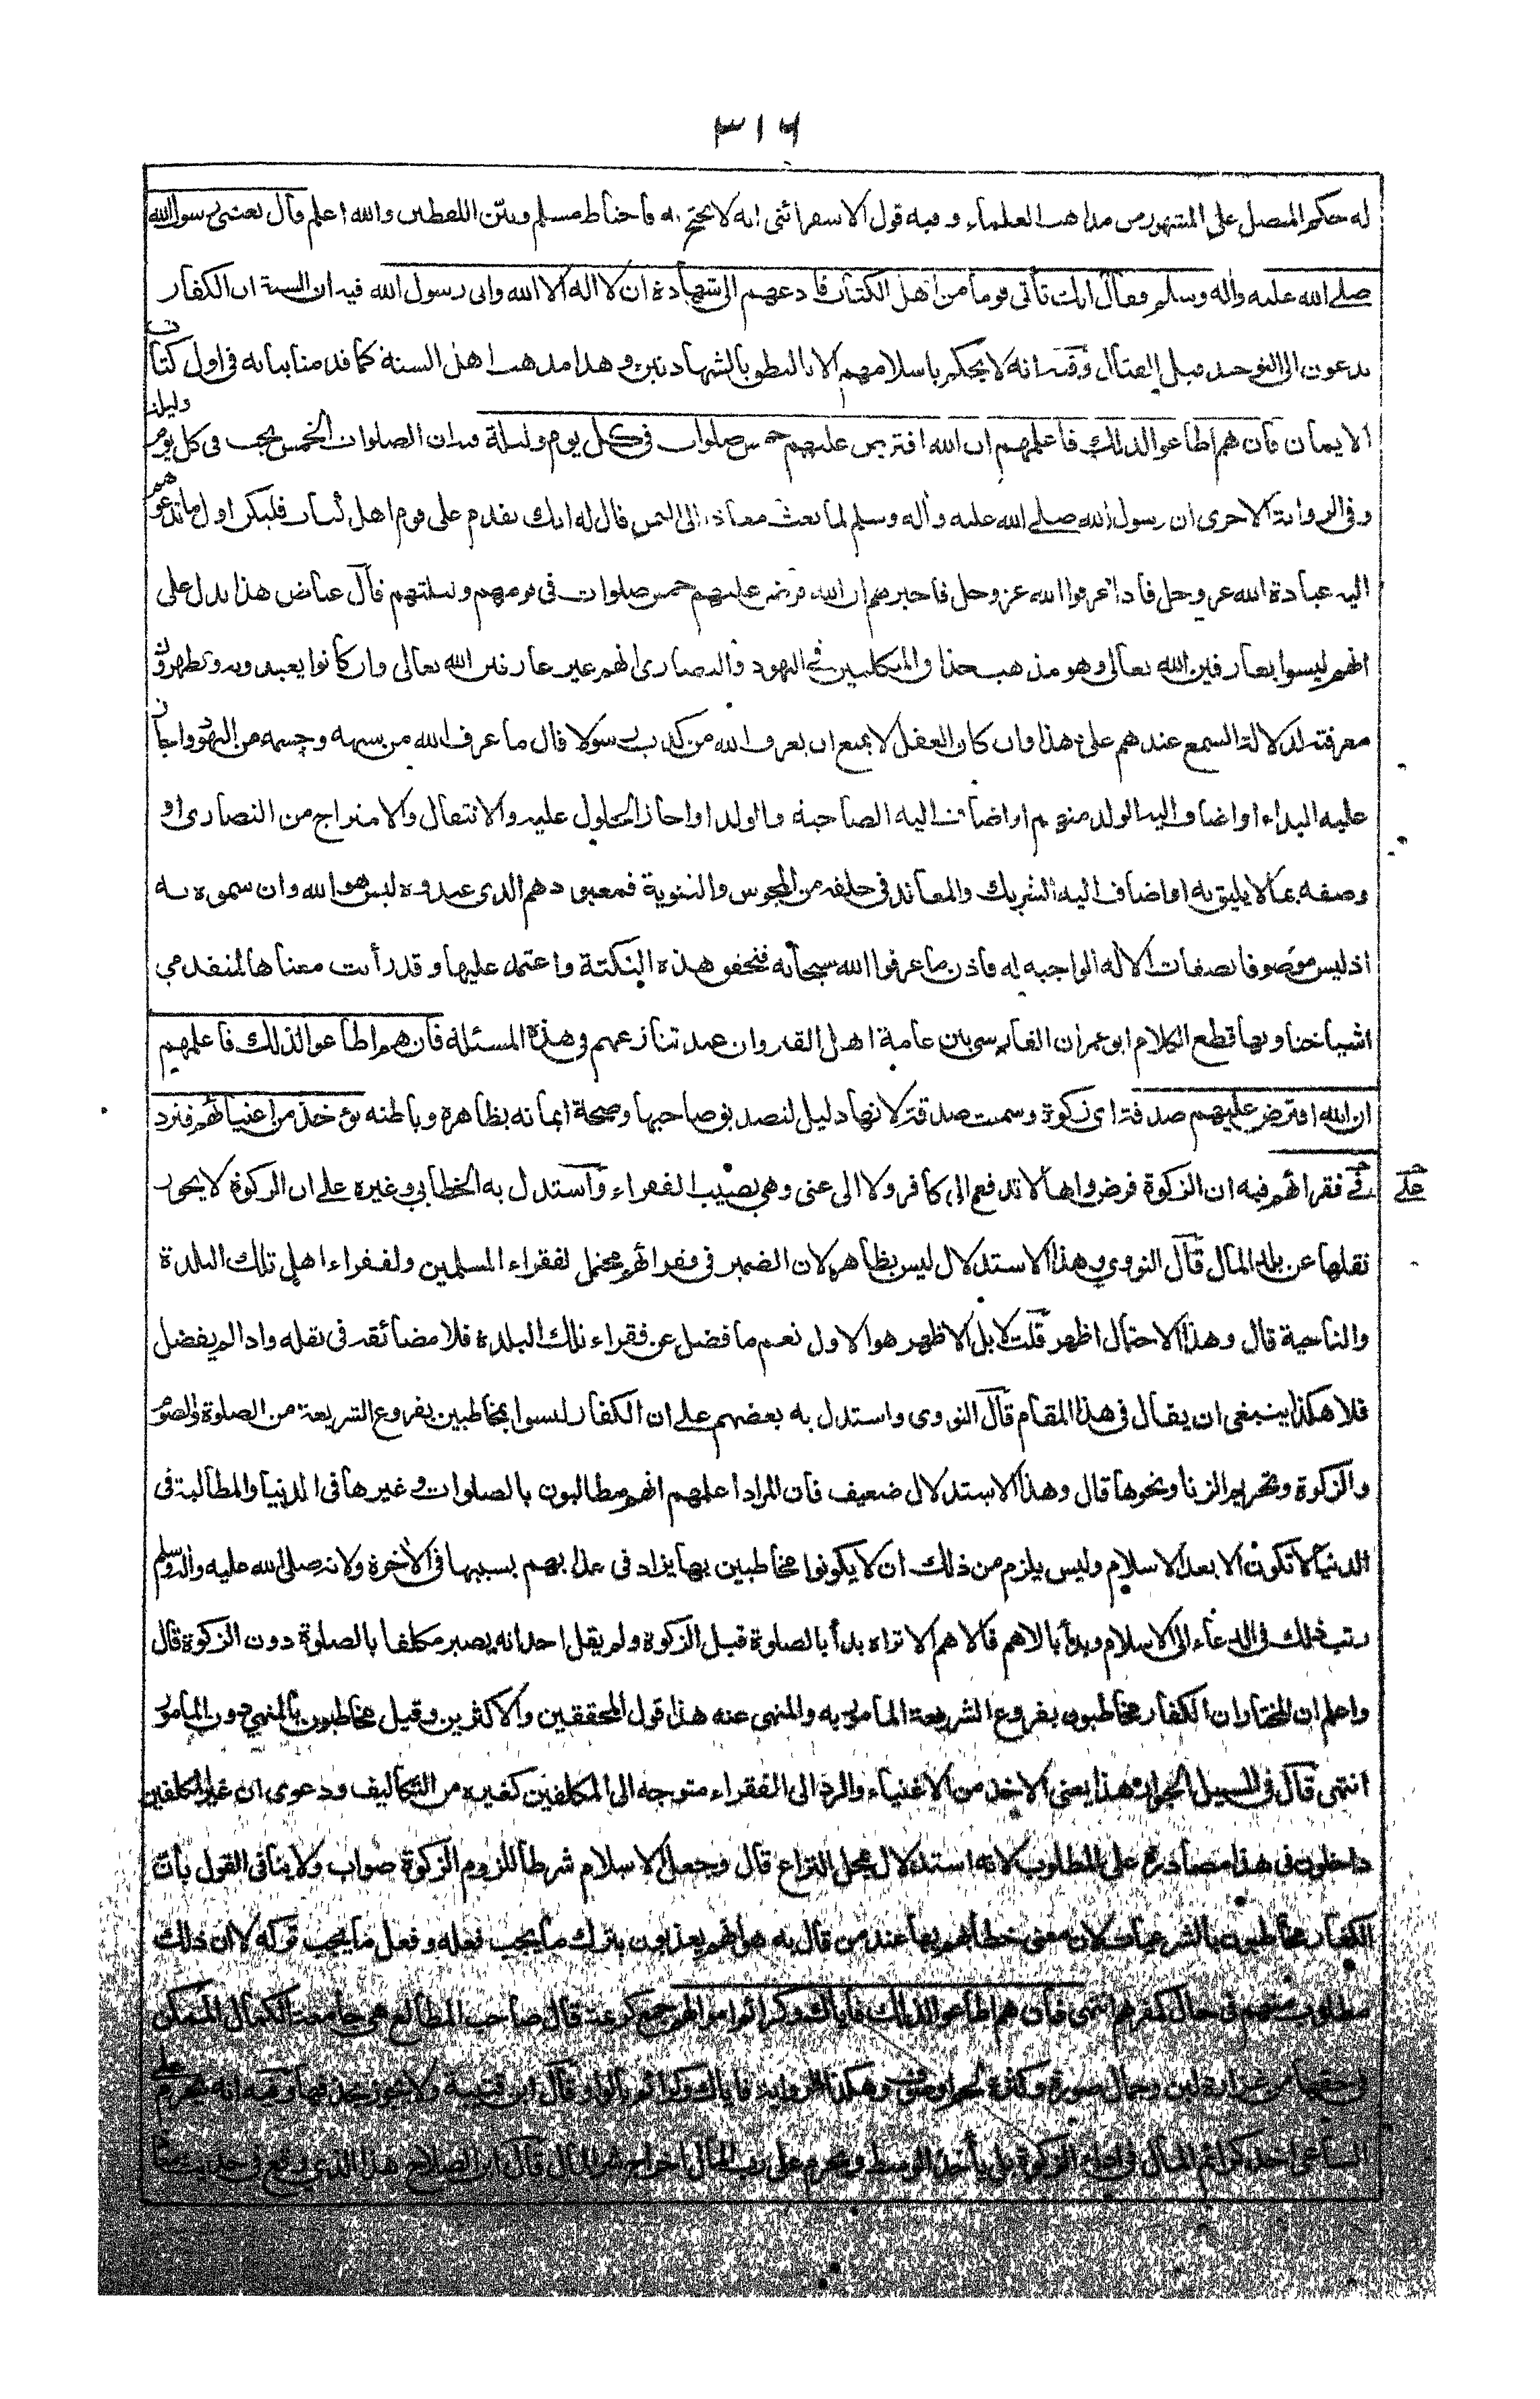 ٣١٦
له حكم المتصل على المشهور من مذاهب العلماء وفيه قول الاسفرائنى انه لا يحتج به فاحتاط مسلم وبين اللفظين والله اعلم قال بعثنى رسول الله
صلى الله عليه وأله وسلم وقال انك تأتى قوما من اهل الكتاب فادعهم الى شهادة ان لا اله الا الله وانى رسول الله فيه ان السنة ان الكفار
يدعون الى التوحيد قبل القتال وفيه انه لا يحكم باسلامهم الا بالنطق بالشهادتين وهذا مذهب اهل السنة كما قدمنا بيانه فى اول كتاب
الايمان فان هم اطاعوا لذلك فأعلمهم ان الله افترض عليهم خمس صلوات فى كل يوم وليلة فيه ان الصلوات الخمس تجب فى كل يوم وليلة
وفى الرواية الاخرى ان رسول الله صلى الله عليه وأله وسلم لما بعث معاذا الى اليمن قال له انك تقدم على قوم اهل كتاب فليكن اول ما تدعوهم
اليه عبادة الله عز وجل فاذا عرفوا الله عز وجل فاخبرهم ان الله فرض عليهم خمس صلوات فى يومهم وليلتهم قال عياض هذا يدل على
انهم ليسوا بعارفين الله تعالى وهو مذهب حذاق المتكلمين فى اليهود والنصارى انهم غير عارفين الله تعالى وان كانوا يعبدونه ويظهرون
معرفته لدلالة السمع عندهم على هذا وان كان العقل لا يمنع ان يعرف الله من كذب رسولا قال ما عرف الله من شبهه وجسمه من اليهود واجاز
عليه البداء او اضاف اليه الولد منهم او اضاف اليه الصاحبة والولد او اجاز الحلول عليه والانتقال والامتزاج من النصارى او
وصفه بما لا يليق به او اضاف اليه الشريك والمعاند فى خلقه من المجوس والثنوية فمعبودهم الذى عبدوه ليس هو الله وان سموه به
اذ ليس موصوفا بصفات الاله الواجبه له فاذن ما عرفوا الله سبحانه فتحقق هذه النكتة واعتمد عليها وقد رأيت معناها لمتقدمى
اشياخنا وبها قطع الكلام ابو عمران الفارسى بين عامة اهل القيروان عند تنازعهم فى هذه المسئلة فان هم اطاعوا لذلك فاعلمهم
ان الله افترض عليهم صدقة اى زكوة وسميت صدقة لانها دليل لتصديق صاحبها وصحة ايمانه بظاهره وباطنه تؤخذ من اغنيائهم فترد
على
فى فقرائهم فيه ان الزكوة فرض وانها لا تدفع الى كافر ولا الى غنى وهى نصيب الفقراء واستدل به الخطابى وغيره على ان الزكوة لا يجوز
نقلها عن بلد المال قال النووى وهذا الاستدلال ليس بظاهر لان الضمير فى فقرائهم محتمل لفقراء المسلمين ولفقراء اهل تلك البلدة
والناحية قال وهذا الاحتمال اظهر قلت لا بل الاظهر هو الاول نعم ما فضل عن فقراء تلك البلدة فلا مضائقه فى نقله واذا لم يفضل
فلا هكذا ينبغى ان يقال فى هذا المقام قال النووى واستدل به بعضهم على ان الكفار ليسوا بمخاطبين بفروع الشريعة من الصلوة والصوم
والزكوة وتحريم الزنا ونحوها قال وهذا الاستدلال ضعيف فان المراد اعلمهم انهم مطالبون بالصلوات وغيرها فى الدنيا والمطالبة فى
الدنيا لا تكون الا بعد الاسلام وليس يلزم من ذلك ان لا يكونوا مخاطبين بها يزاد فى عذابهم بسببها فى الاخرة ولانه صلى الله عليه وأله وسلم
رتب ذلك فى الدعاء الى الاسلام وبدأ بالاهم فالاهم الا تراه بدأ بالصلوة قبل الزكوة ولم يقل احد انه يصير مكلفا بالصلوة دون الزكوة قال
واعلم ان المختار ان الكفار مخاطبون بفروع الشريعة المامور به والمنهى عنه هذا قول المحققين والاكثرين وقيل مخاطبون بالمنهى دون المامور
انتهى قال فى السيل الجرار هذا يعنى الاخذ من الاغنياء والرد الى الفقراء متوجه الى المكلفين كغيره من التكاليف ودعوى ان غير المكلفين
داخلون فى هذا مصادرة على المطلوب لانه استدلال بمحل النزاع قال وجعل الاسلام شرطا للزوم الزكوة صواب ولا ينافى القول بأن
الكفار مخاطبون بالشرعيات لان معنى خطابهم بها عند من قال به هو انهم يعذبون بترك ما يجب فعله وفعل ما يجب تركه لا ان ذلك
مطلوب منهم فى حال كفرهم انتهى فان هم اطاعوا لذلك فاياك وكرائم اموالهم جمع كريمة قال صاحب المطالع هى جامعة الكمال الممكن
فى حقها من غزارة لبن وجمال صورة وكثرة لحم او صوف وهكذا الرواية فاياك وكرائم بالواو قال ابن قتيبة ولا يجوز حذفها وفيه انه يحرم على
الساعى اخذ كرائم المال فى اداء الزكوة بل يأخذ الوسط ويحرم على رب المال اخراج شر المال قال ابن الصلاح هذا الذى وقع فى حديث معاذ